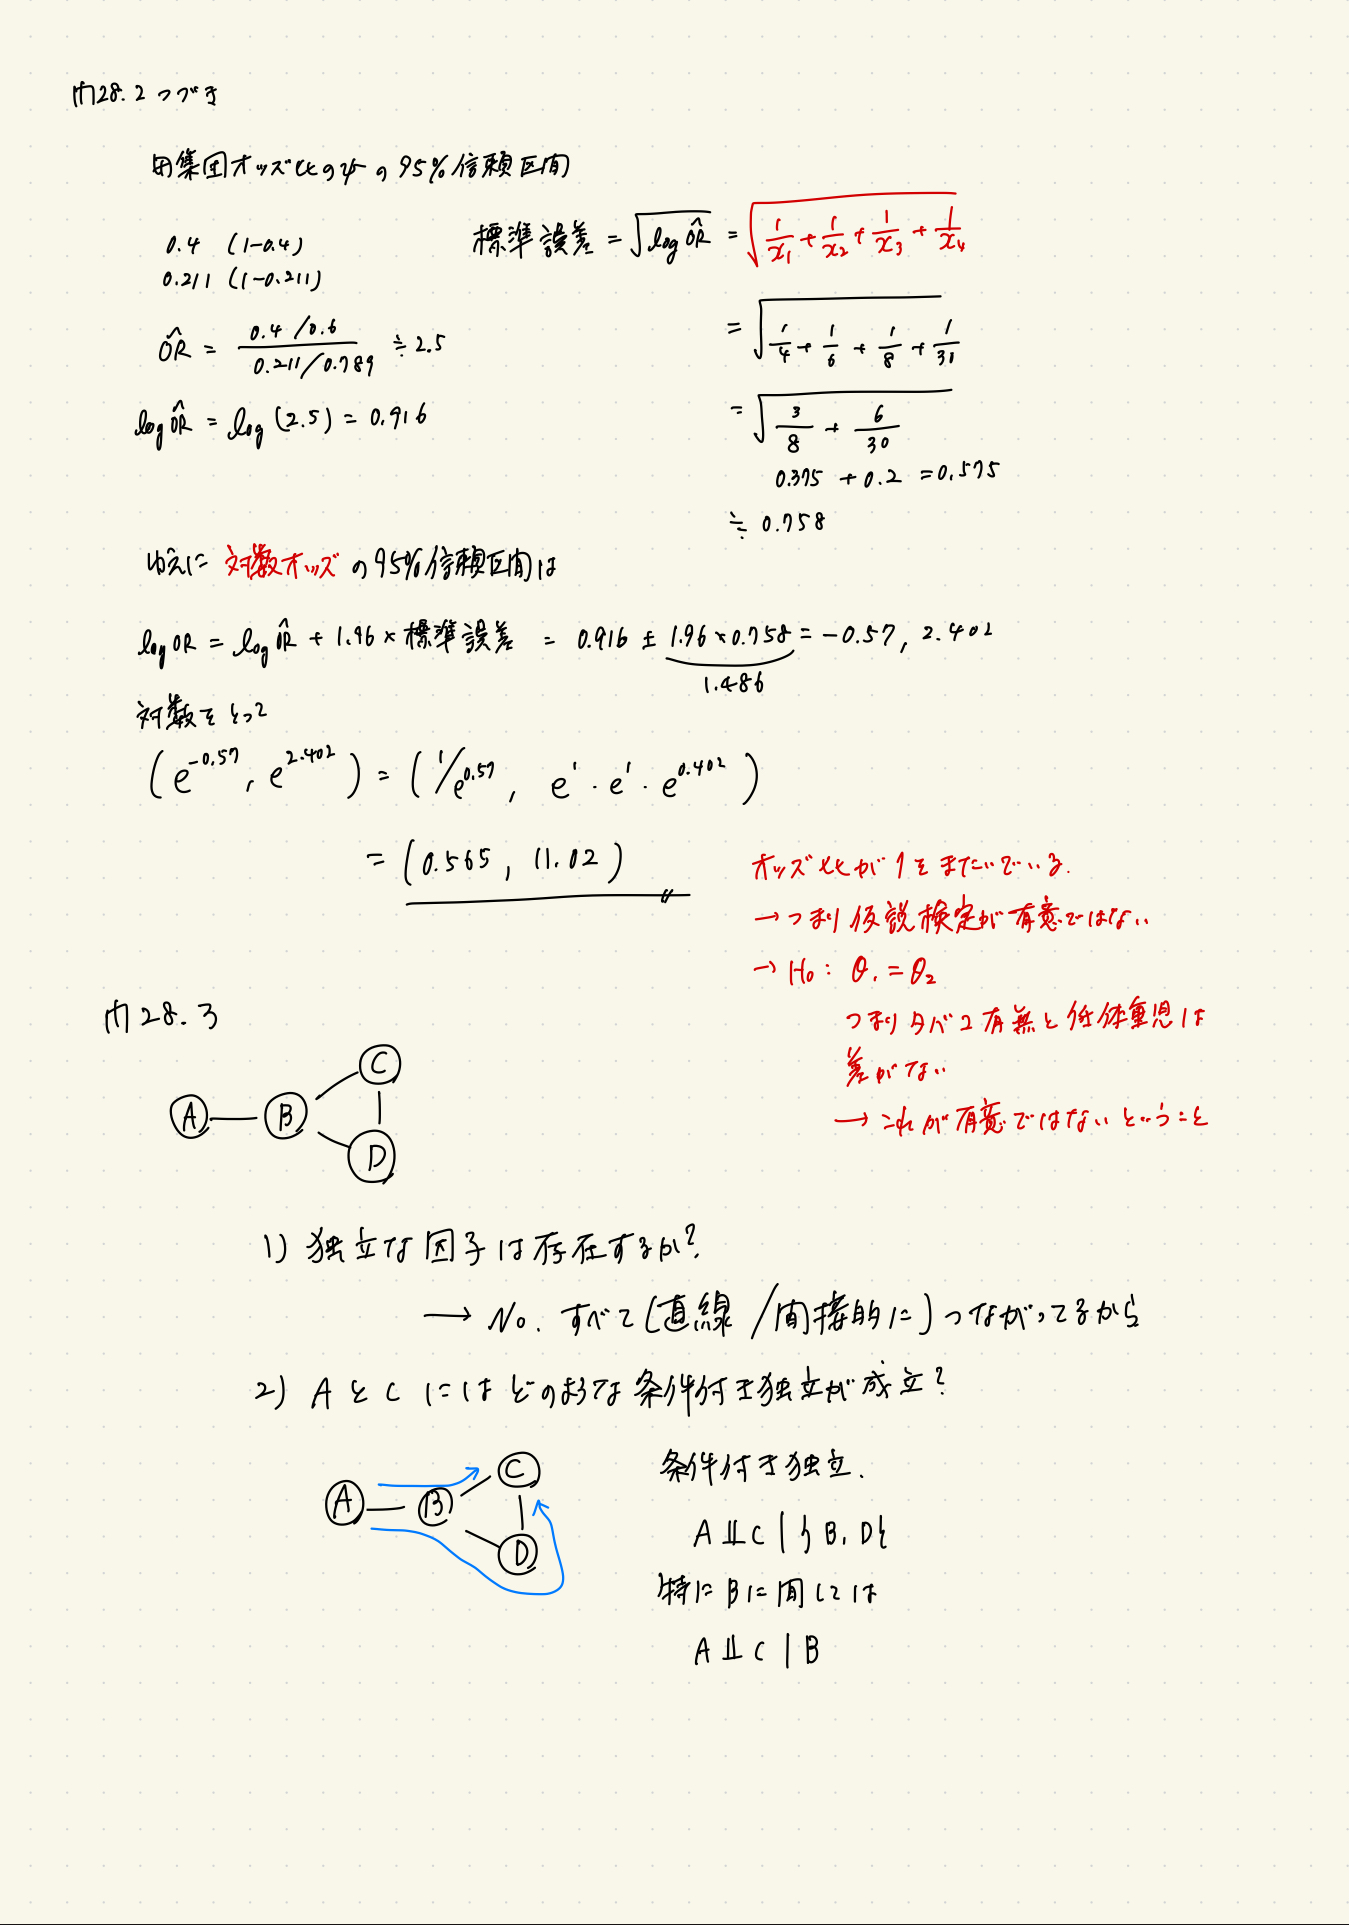 問28.2 つづき
母集団オッズ比のψの95%信頼区間
0.4 (1-0.4)
0.211 (1-0.211)
ÔR = 0.4/0.6 / 0.211/0.789 ≒ 2.5
log ÔR = log (2.5) = 0.916
標準誤差 = √log ÔR = √1/x₁ + 1/x₂ + 1/x₃ + 1/x₄
= √1/4 + 1/6 + 1/8 + 1/30
= √3/8 + 6/30
0.375 + 0.2 = 0.575
≒ 0.758
ゆえに 対数オッズの95%信頼区間は
log OR = log ÔR + 1.96 × 標準誤差 = 0.916 ± 1.96 × 0.758 = -0.57, 2.402
1.486
対数をとって
(e^-0.57, e^2.402) = (1/e^0.57, e^1 · e^1 · e^0.402)
= (0.565, 11.02)
オッズ比が1をまたいでいる.
→つまり仮説検定が有意ではない
→ H₀: θ₁ = θ₂
つまりタバコ有無と低体重児は
差がない
→ これが有意ではないということ
問28.3
A B C D
1) 独立な因子は存在するか?
→ No. すべて(直線/間接的に)つながってるから
2) AとCにはどのような条件付き独立が成立?
A B C D
条件付き独立.
A⫫C | {B, D}
特にBに関しては
A⫫C | B